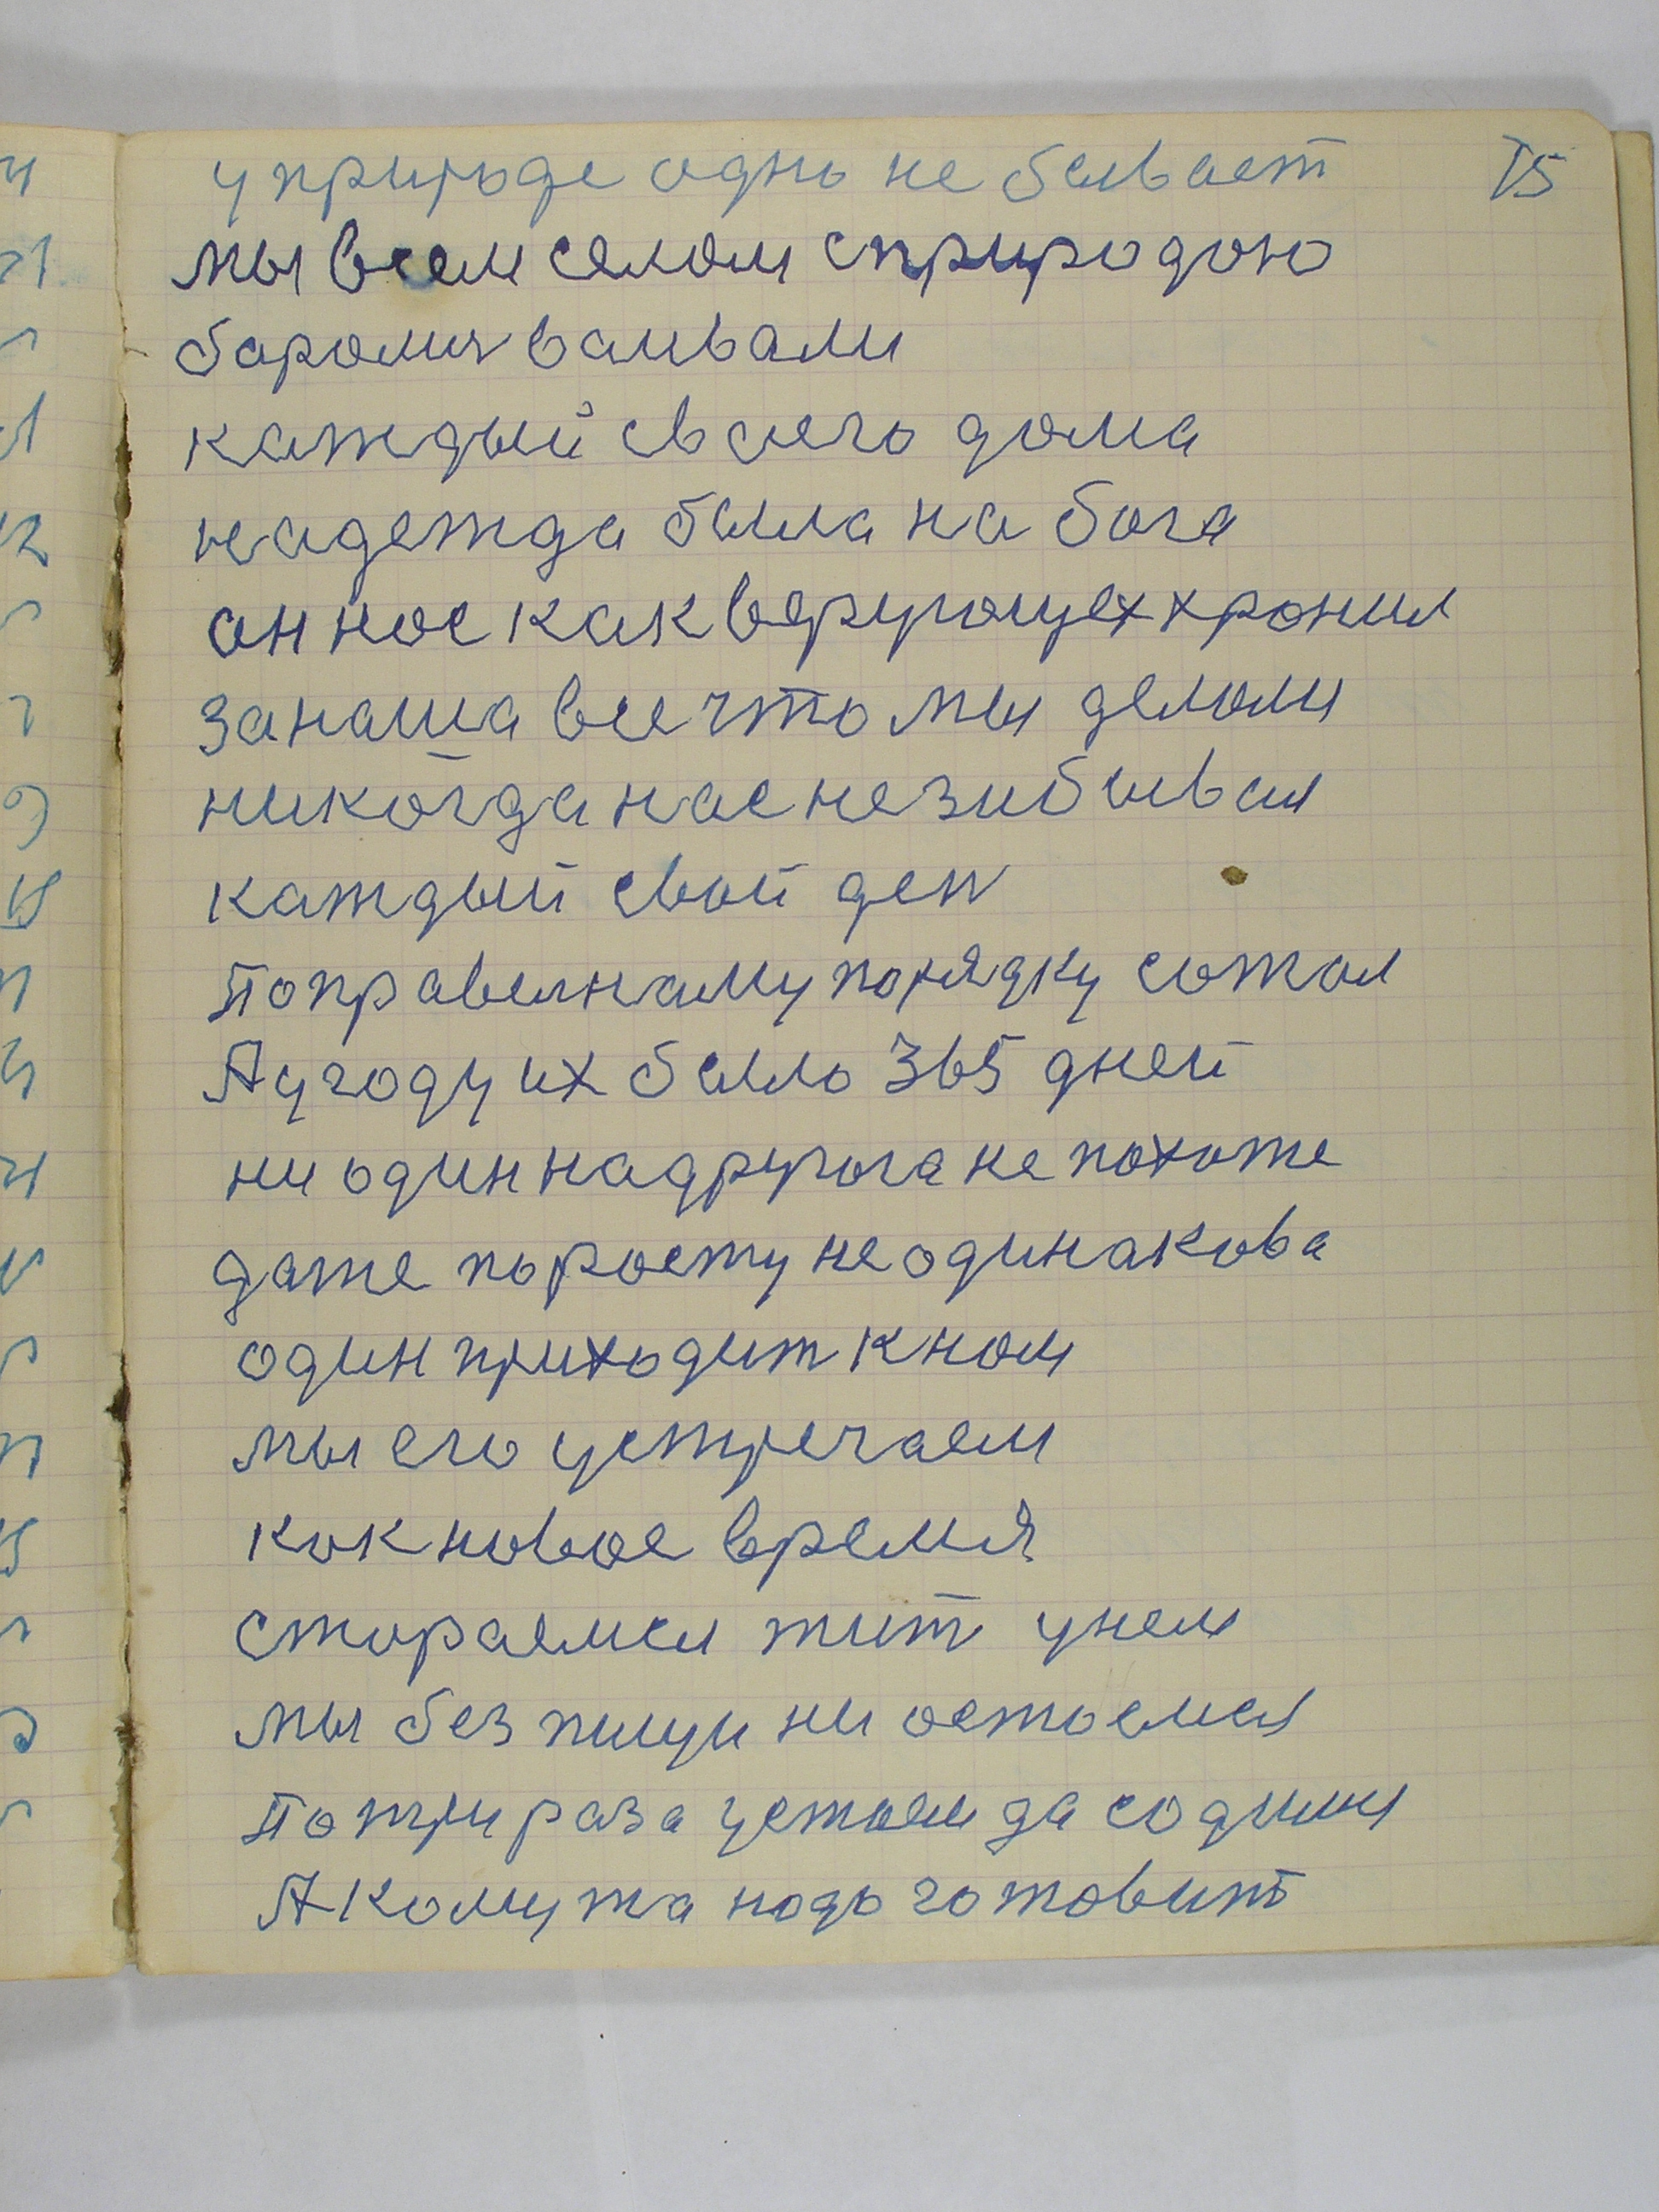 у природе одно не бывает 15
мы всем селом с природою
баролис ваивали
каждый с воего дома
надежда была на бога
он нас как верующех хронил
за наша все что мы делали
никогда нас не зибывал
каждый свой ден
по правелнаму порядку сожал
А у году их было 365 дней
ни один на другога не похоже
даже по росту не одинакова
один приходит к нам
мы его устречаем
как новое время
стораемся жит у нем
мы без пищи ни остоемся
По три раза устоем да содими
А кому жа надо готовит